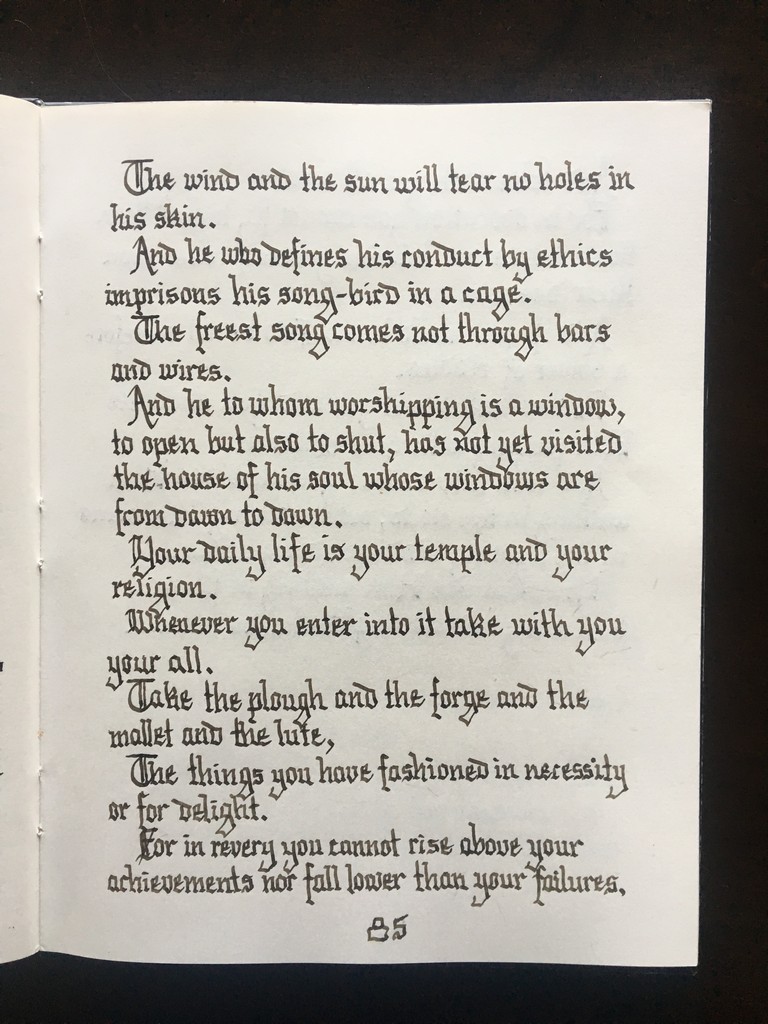 The wind and the sun will tear no holes in
his skin.
And he who defines his conduct by ethics
imprisons his song-bird in a cage.
The freest song comes not through bars
and wires.
And he to whom worshipping is a window,
to open but also to shut, has not yet visited
the house of his soul whose windows are
from dawn to dawn.
Your daily life is your temple and your
religion.
Whenever you enter into it take with you
your all.
Take the plough and the forge and the
mallet and the lute,
The things you have fashioned in necessity
or for delight.
For in revery you cannot rise above your
achievements nor fall lower than your failures.
85